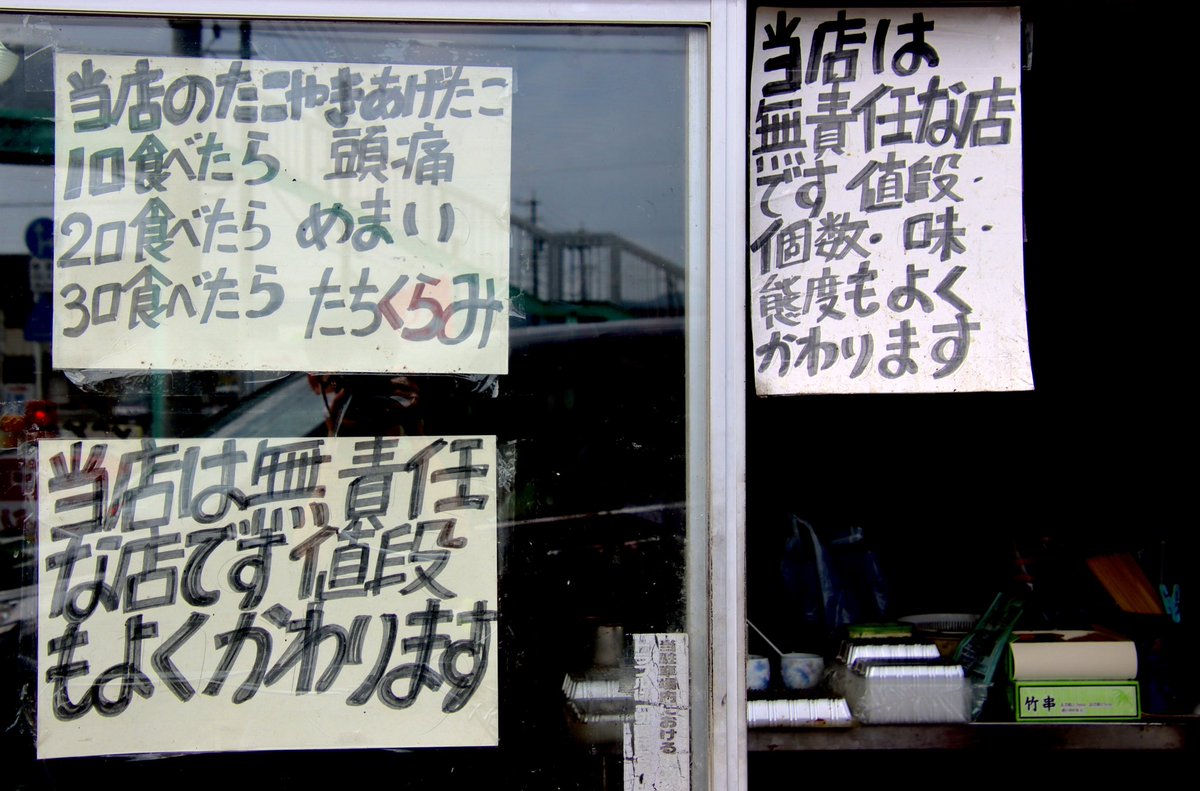 当店のたこやきあげたこ
1口食べたら 頭痛
2口食べたら めまい
3口食べたら たちくらみ
当店は無責任
な店です値段
もよくかわります
当店は
無責任な店
です 値段・
個数・味・
態度もよく
かわります
竹串